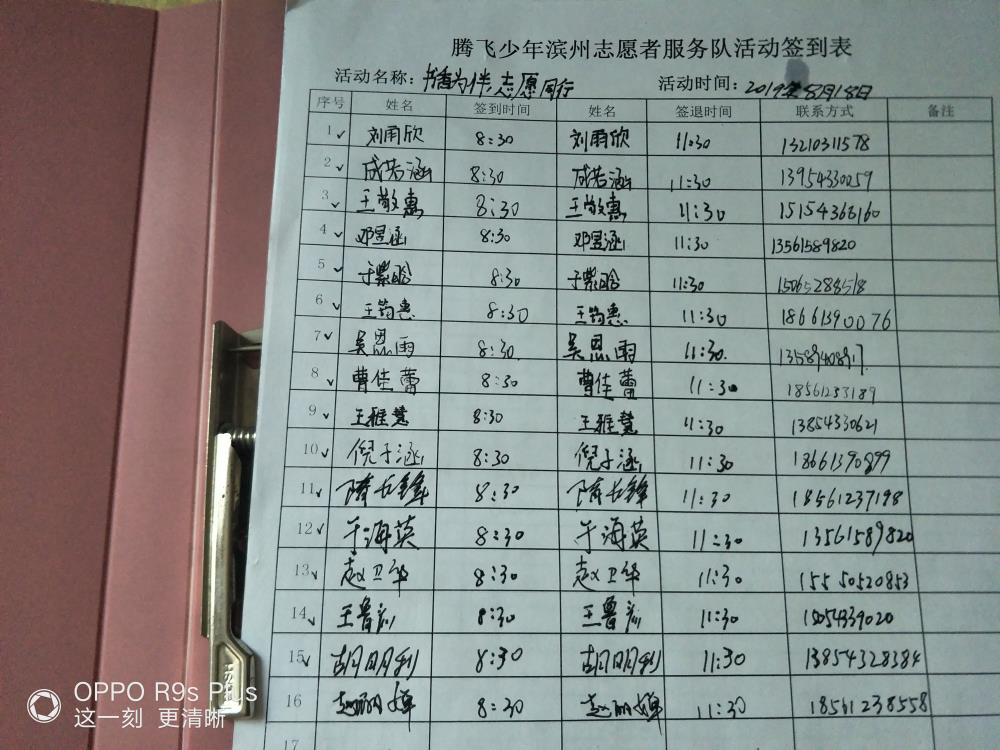 腾飞少年滨州志愿者服务队活动签到表
活动名称: 书香为伴 志愿同行 活动时间: 2019年8月18日
序号 姓名 签到时间 姓名 签退时间 联系方式 备注
1 刘雨欣 8:30 刘雨欣 11:30 13210311578
2 成若涵 8:30 成若涵 11:30 13954330059
3 王敬惠 8:30 王敬惠 11:30 15154366160
4 邓昱涵 8:30 邓昱涵 11:30 13561589820
5 于紫晗 8:30 于紫晗 11:30 15065288518
6 王筠惠 8:30 王筠惠 11:30 18661390076
7 吴恩雨 8:30 吴恩雨 11:30
8 曹佳蕾 8:30 曹佳蕾 11:30 18561233189
9 王雅慧 8:30 王雅慧 11:30 13854330621
10 倪子涵 8:30 倪子涵 11:30 18661390899
11 8:30 11:30 18561237198
12 于海英 8:30 于海英 11:30 13561589820
13 赵卫华 8:30 赵卫华 11:30 15550520853
14 8:30 11:30 15054339020
15 胡明利 8:30 胡明利 11:30 13854328384
16 8:30 11:30 18561238558
17
OPPO R9s Plus
这一刻 更清晰